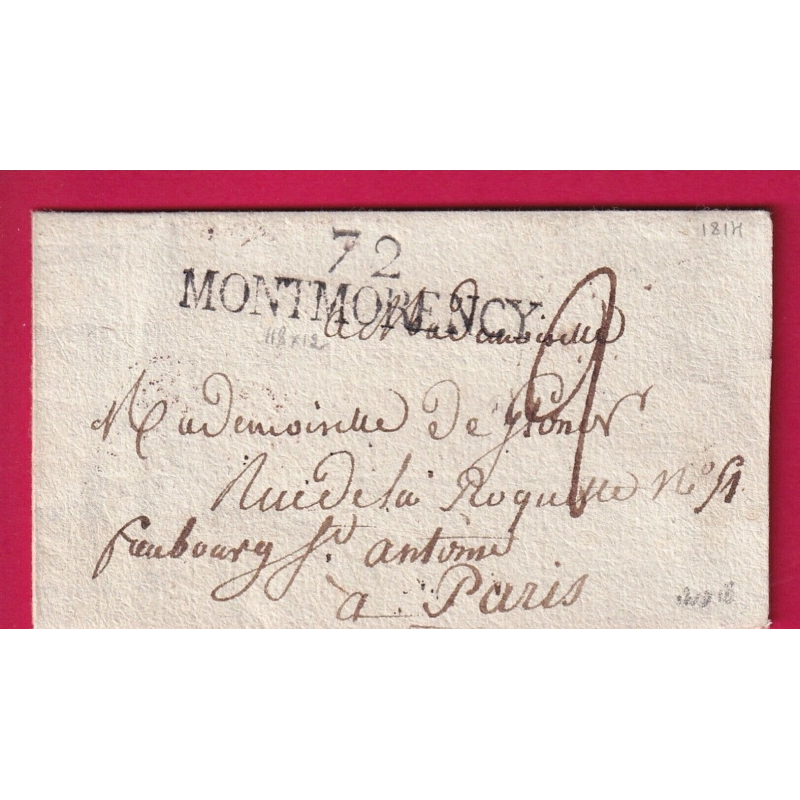 1814
72
MONTMORENCY
a Mademoiselle
2
118 x 12
Mademoiselle De
Rue de la Roquette No 51
faubourg St. antoine
a Paris